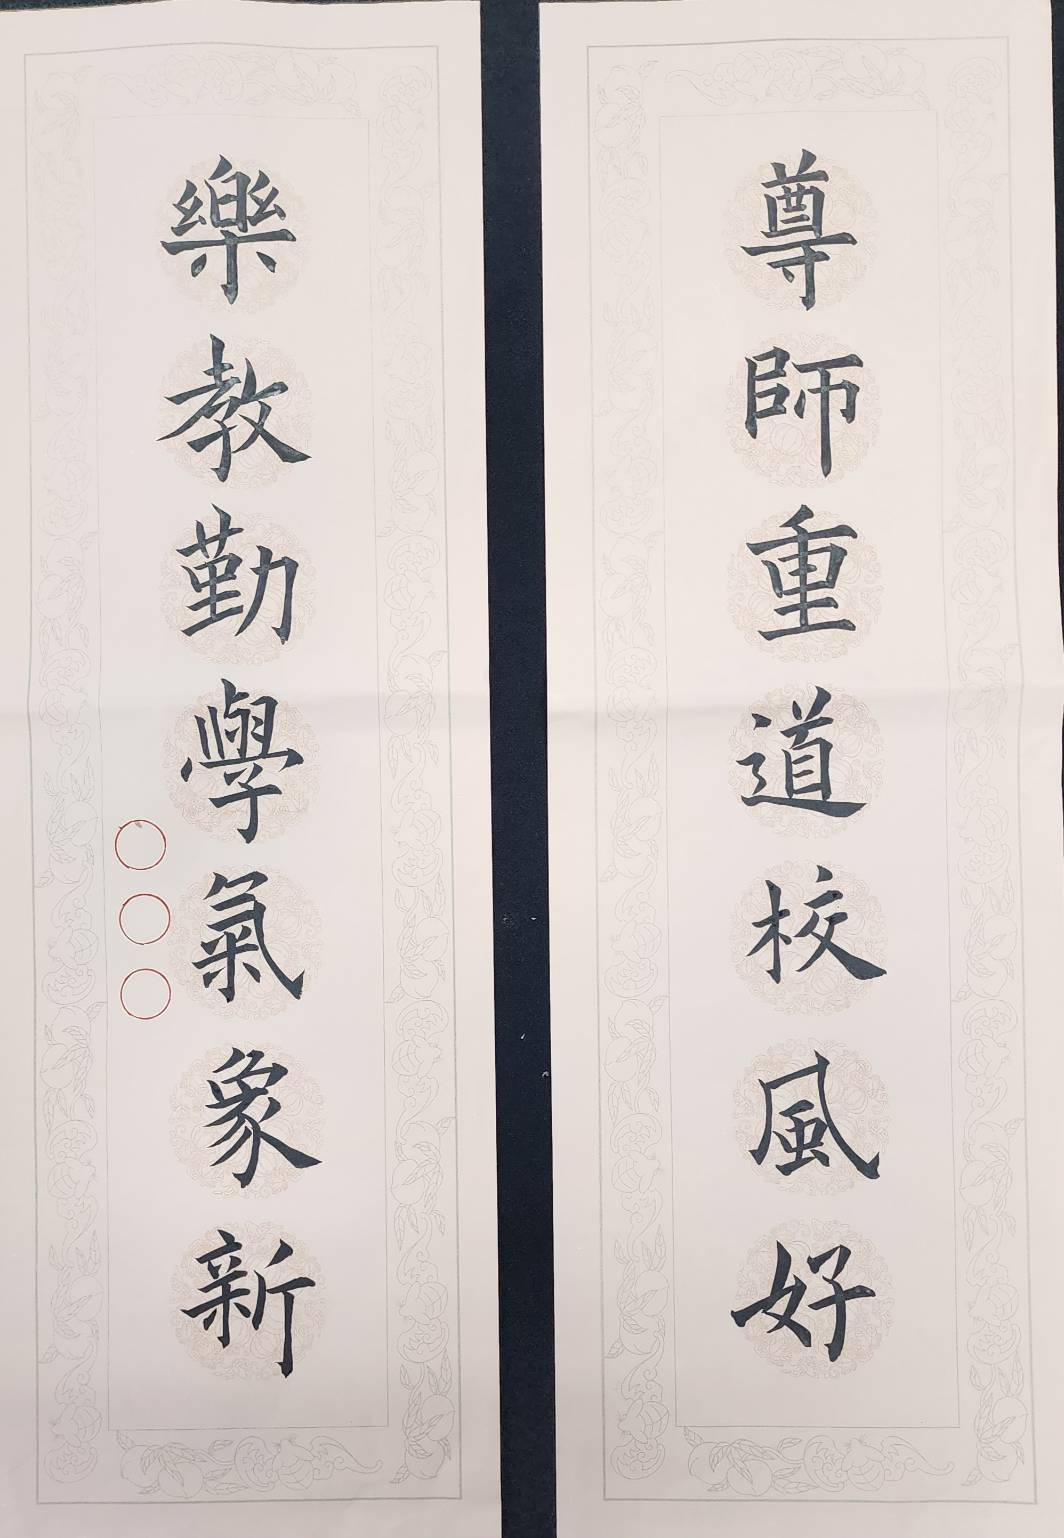 尊師重道校風好
樂教勤學氣象新